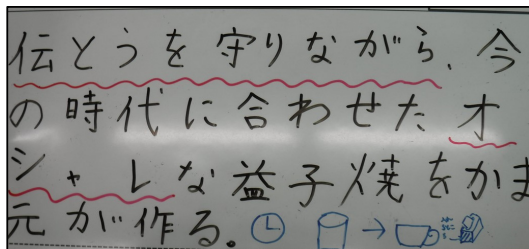 伝とうを守りながら、今
の時代に合わせたオ
シャレな益子焼をかま
元が作る。